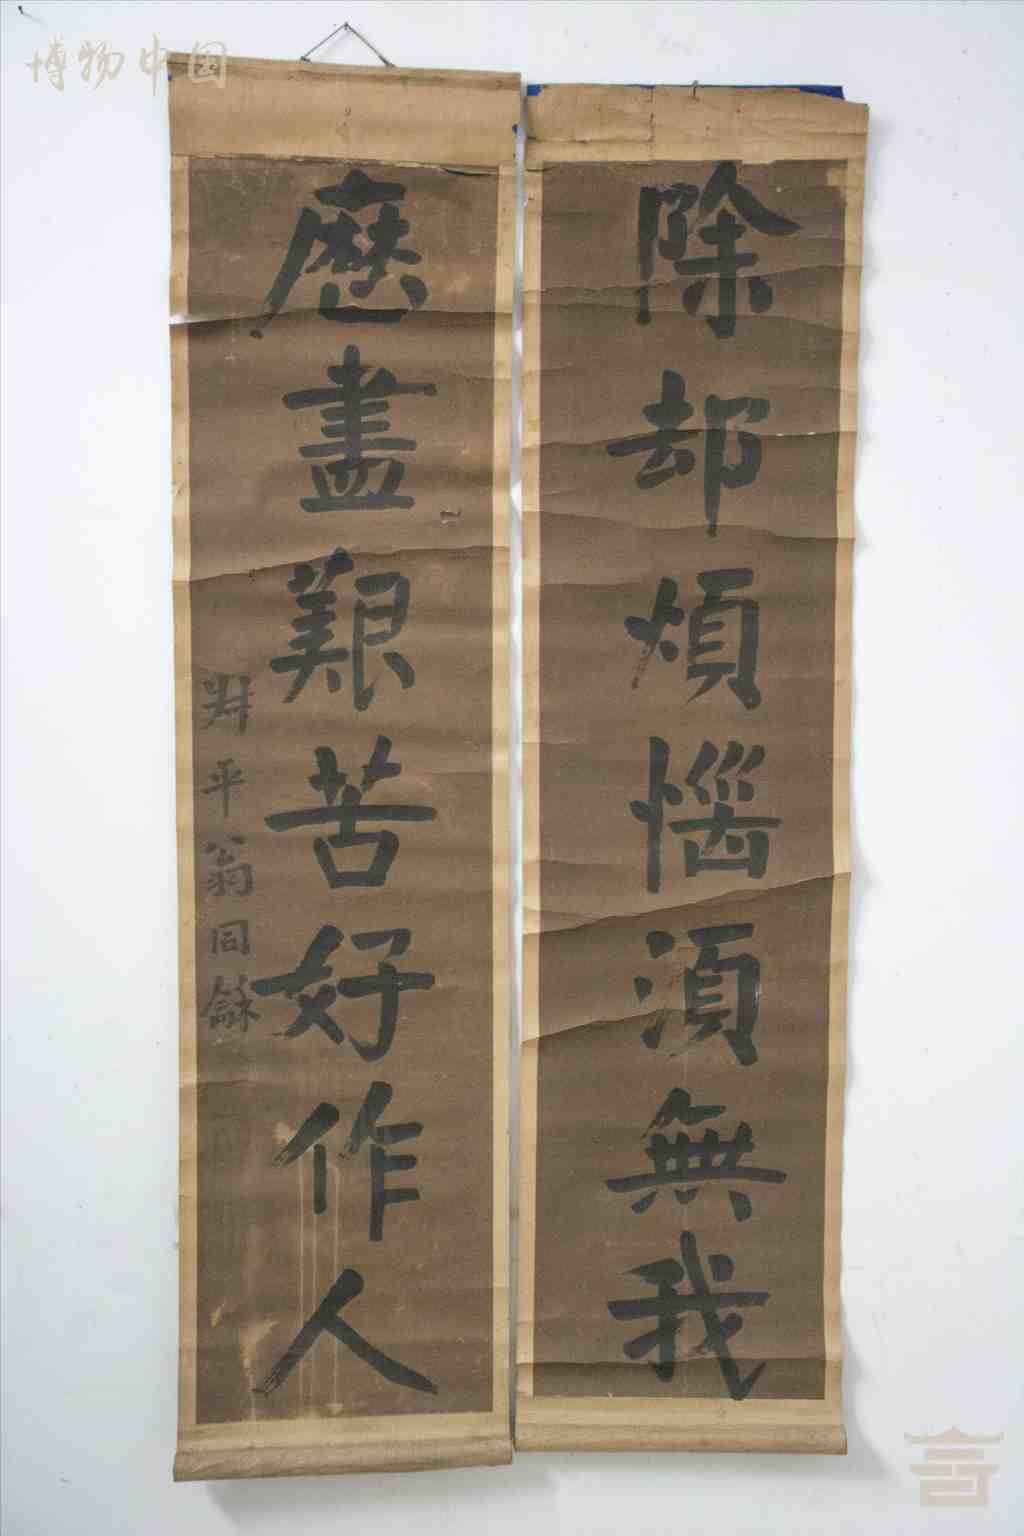 除却煩惱須無我
歷盡艱苦好作人
尗平翁同龢
博物中国